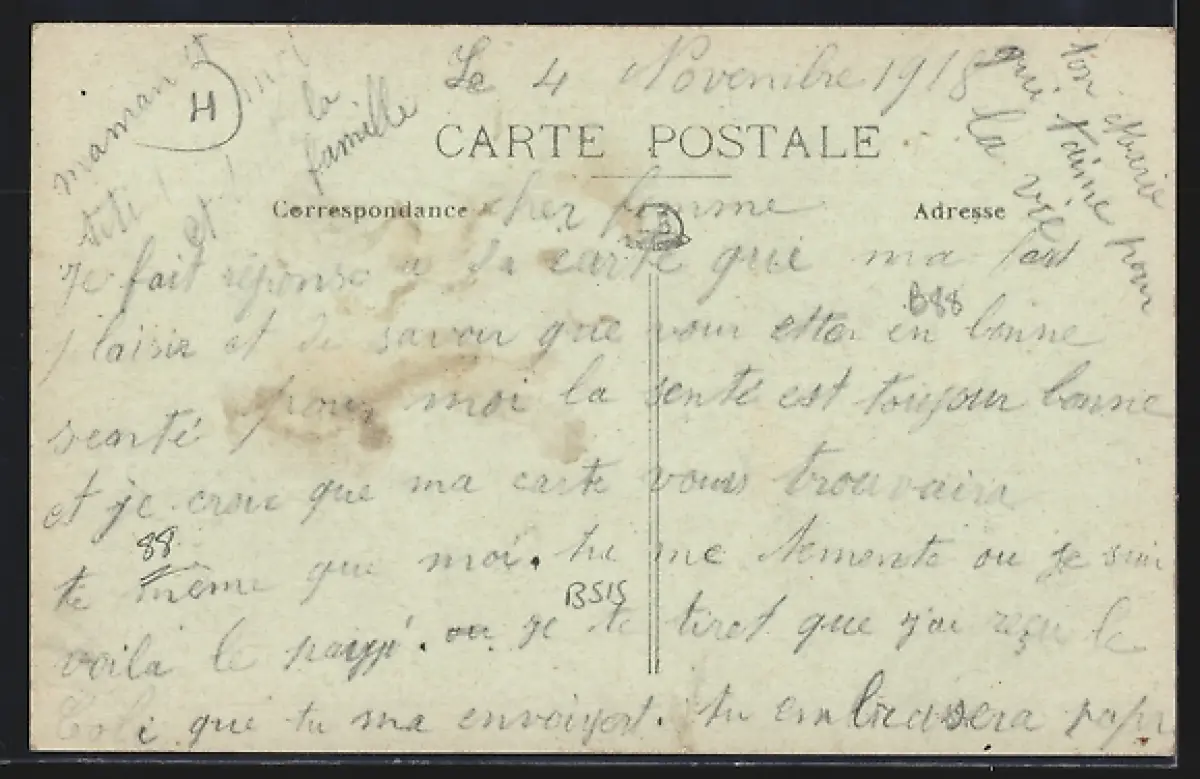 Le 4 Novembre 1918
CARTE POSTALE
Correspondance
Adresse
cher femme
Je fait réponse a ta carte que ma fait
plaisir et de savoir que vous etter en bonne
senté pour moi la senté est toujour bonne
et je croie que ma carte vous trouvaira
te même que moi. tu me demente ou je suis
voilà le payýs. ou je te tiret que j'ai reçu le
Coli que tu ma envoiyert. tu embrasera papa
maman et
titi
et la
famille
ton Marie
que t'aime pour
la vie
H
B88
88
BSIS